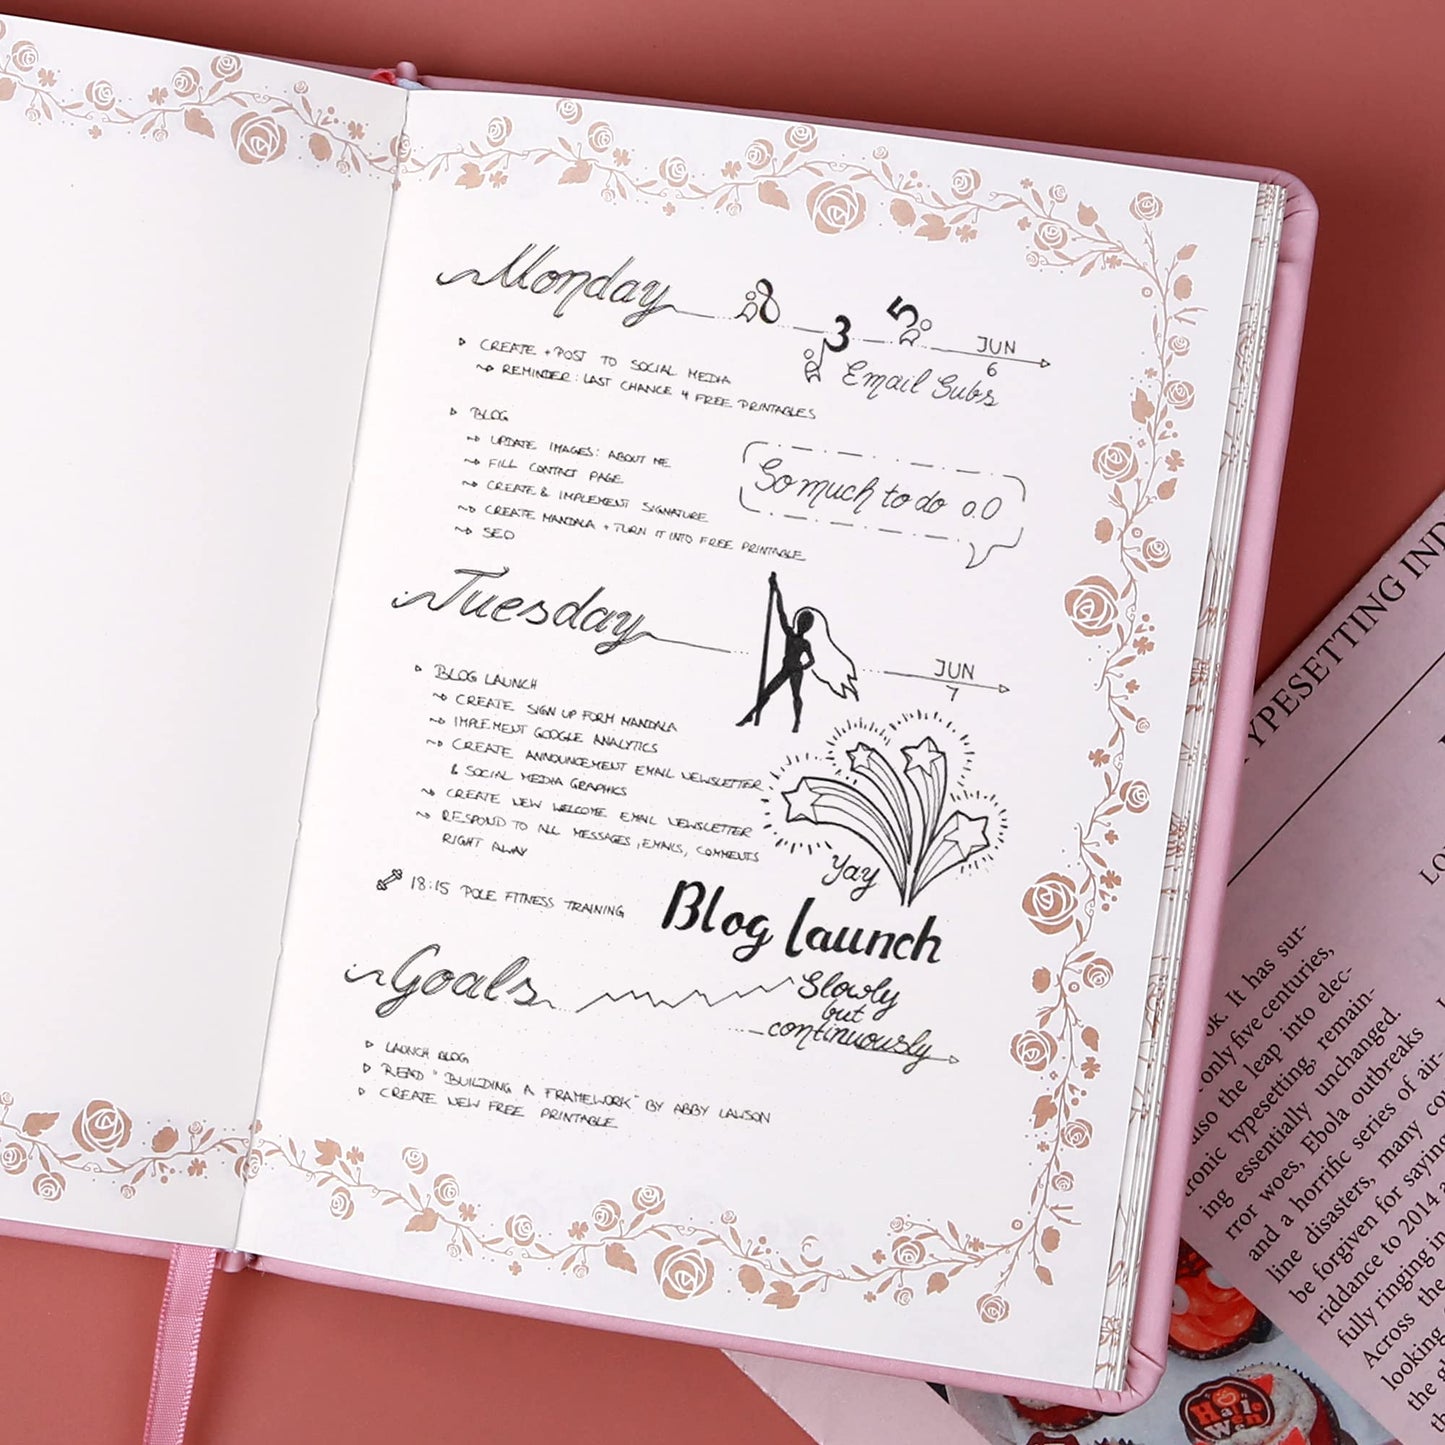 Monday
8 3 5
JUN
6
Email Subs
CREATE + POST TO SOCIAL MEDIA
REMINDER: LAST CHANCE 4 FREE PRINTABLES
BLOG
UPDATE IMAGES: ABOUT ME
FILL CONTACT PAGE
CREATE & IMPLEMENT SIGNATURE
CREATE MANDALA + TURN IT INTO FREE PRINTABLE
SEO
So much to do o.O
Tuesday
JUN
7
BLOG LAUNCH
CREATE SIGN UP FORM MANDALA
IMPLEMENT GOOGLE ANALYTICS
CREATE ANNOUNCEMENT EMAIL NEWSLETTER
& SOCIAL MEDIA GRAPHICS
CREATE NEW WELCOME EMAIL NEWSLETTER
RESPOND TO ALL MESSAGES, EMAILS, COMMENTS
RIGHT AWAY
18:15 POLE FITNESS TRAINING
Yay
Blog launch
Goals
Slowly
but
continuously
LAUNCH BLOG
READ "BUILDING A FRAMEWORK" BY ABBY LAWSON
CREATE NEW FREE PRINTABLE
YPESETTING IND
ok. It has sur-
only five centuries,
also the leap into elec-
tronic typesetting, remain-
ing essentially unchanged.
rror woes, Ebola outbreaks
and a horrific series of air-
line disasters, many co
be forgiven for saying
riddance to 2014
fully ringing in
Across the
looking
the
Hallo
Ween